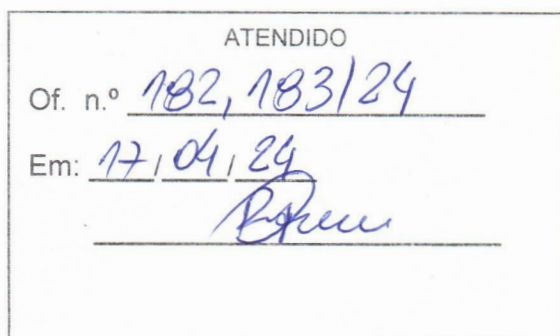 ATENDIDO
Of. n.º 182, 183/24
Em: 17/04/24